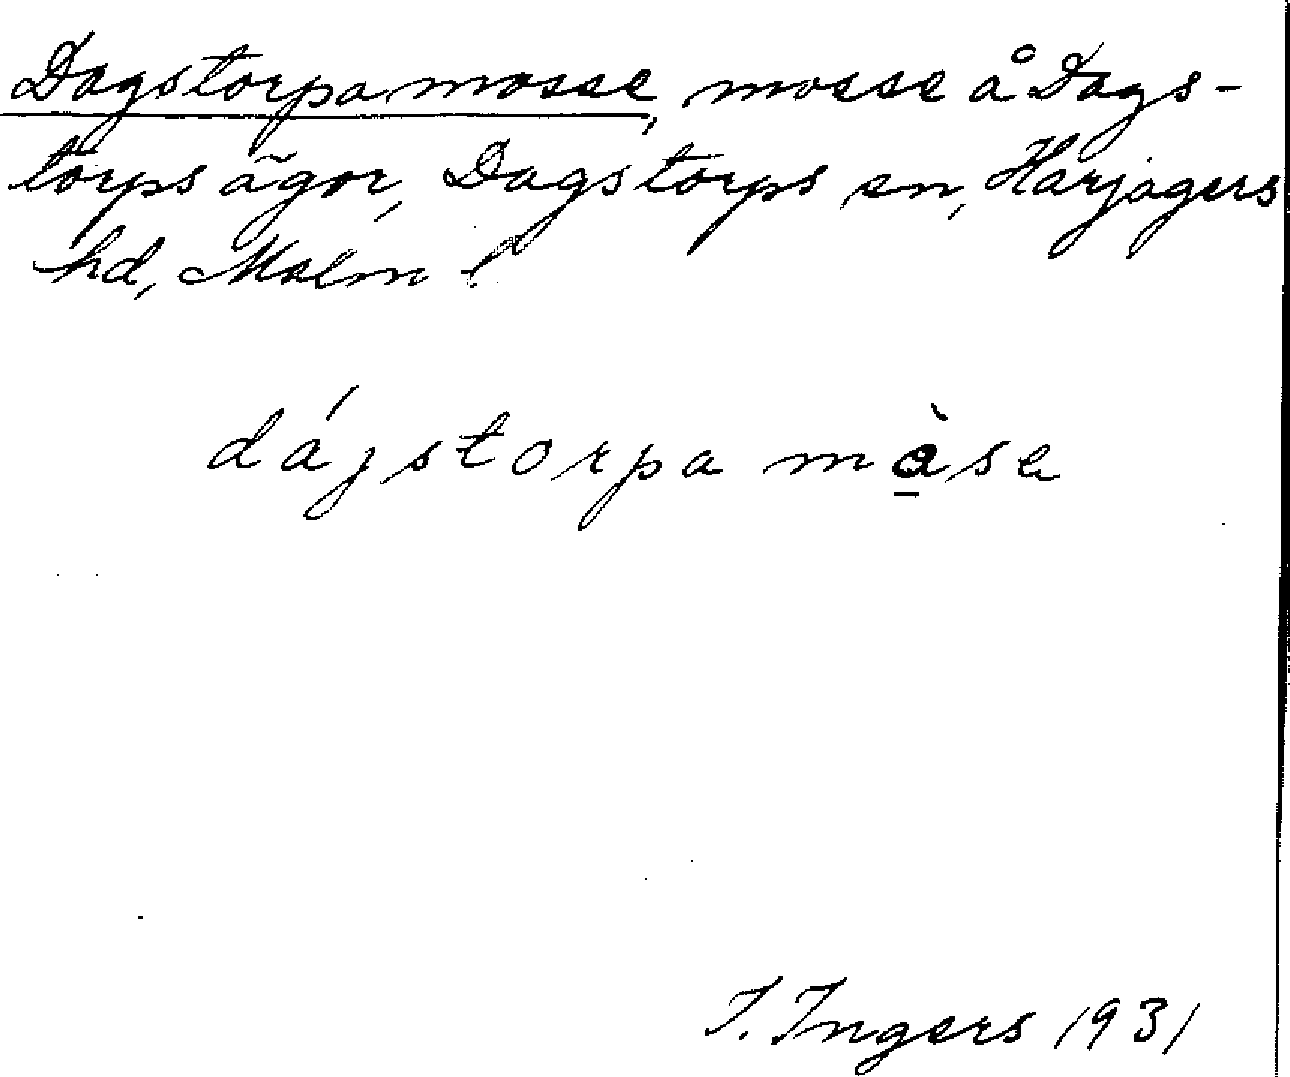 Dagstorpa mosse, mosse å Dags-
torps ägor, Dagstorps sn, Harjagers
hd, Malm l
dájstorpa mò̱se
I. Ingers 1931